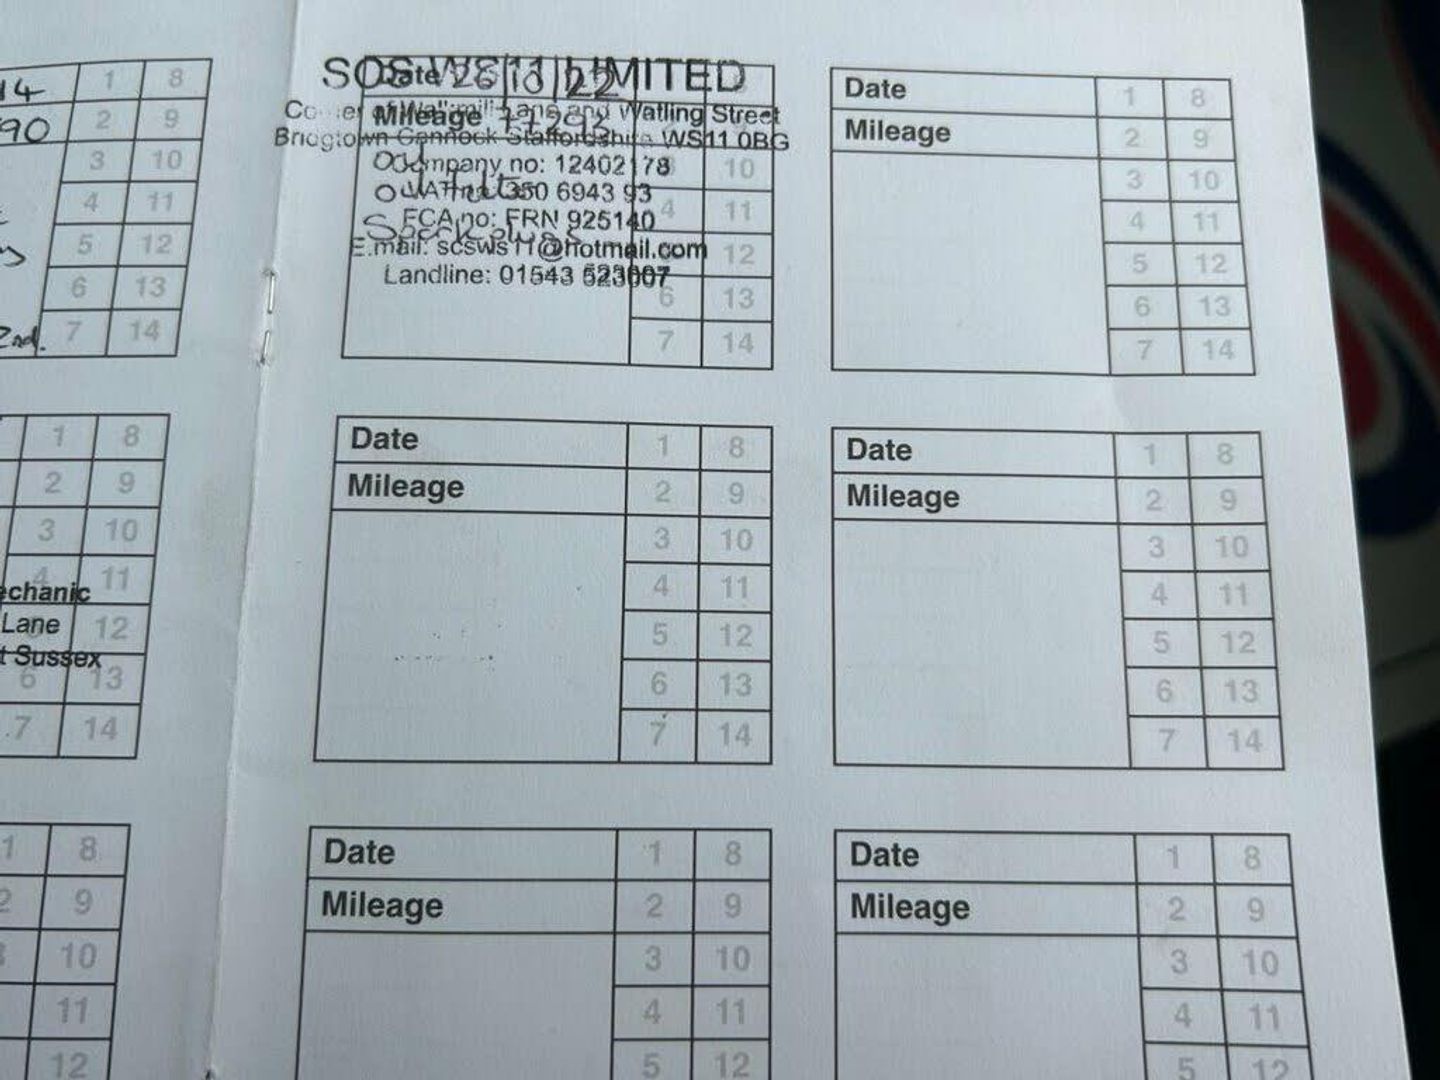 14
90
2nd.
1 8
2 9
3 10
4 11
5 12
6 13
7 14
SOS WS11 LIMITED
Date 26/10/22
Corner of Walkmill Lane and Watling Street
Mileage
Bridgtown Cannock Staffordshire WS11 0BG
Company no: 12402178
VAT no: 350 6943 93
FCA no: FRN 925140
E.mail: scsws11@hotmail.com
Landline: 01543 523007
10
4 11
12
6 13
7 14
Date 1 8
Mileage 2 9
3 10
4 11
5 12
6 13
7 14
1 8
2 9
3 10
4 11
echanic
Lane 12
t Sussex
6 13
7 14
Date 1 8
Mileage 2 9
3 10
4 11
5 12
6 13
7 14
Date 1 8
Mileage 2 9
3 10
4 11
5 12
6 13
7 14
1 8
2 9
10
11
12
Date 1 8
Mileage 2 9
3 10
4 11
5 12
Date 1 8
Mileage 2 9
3 10
4 11
5 12